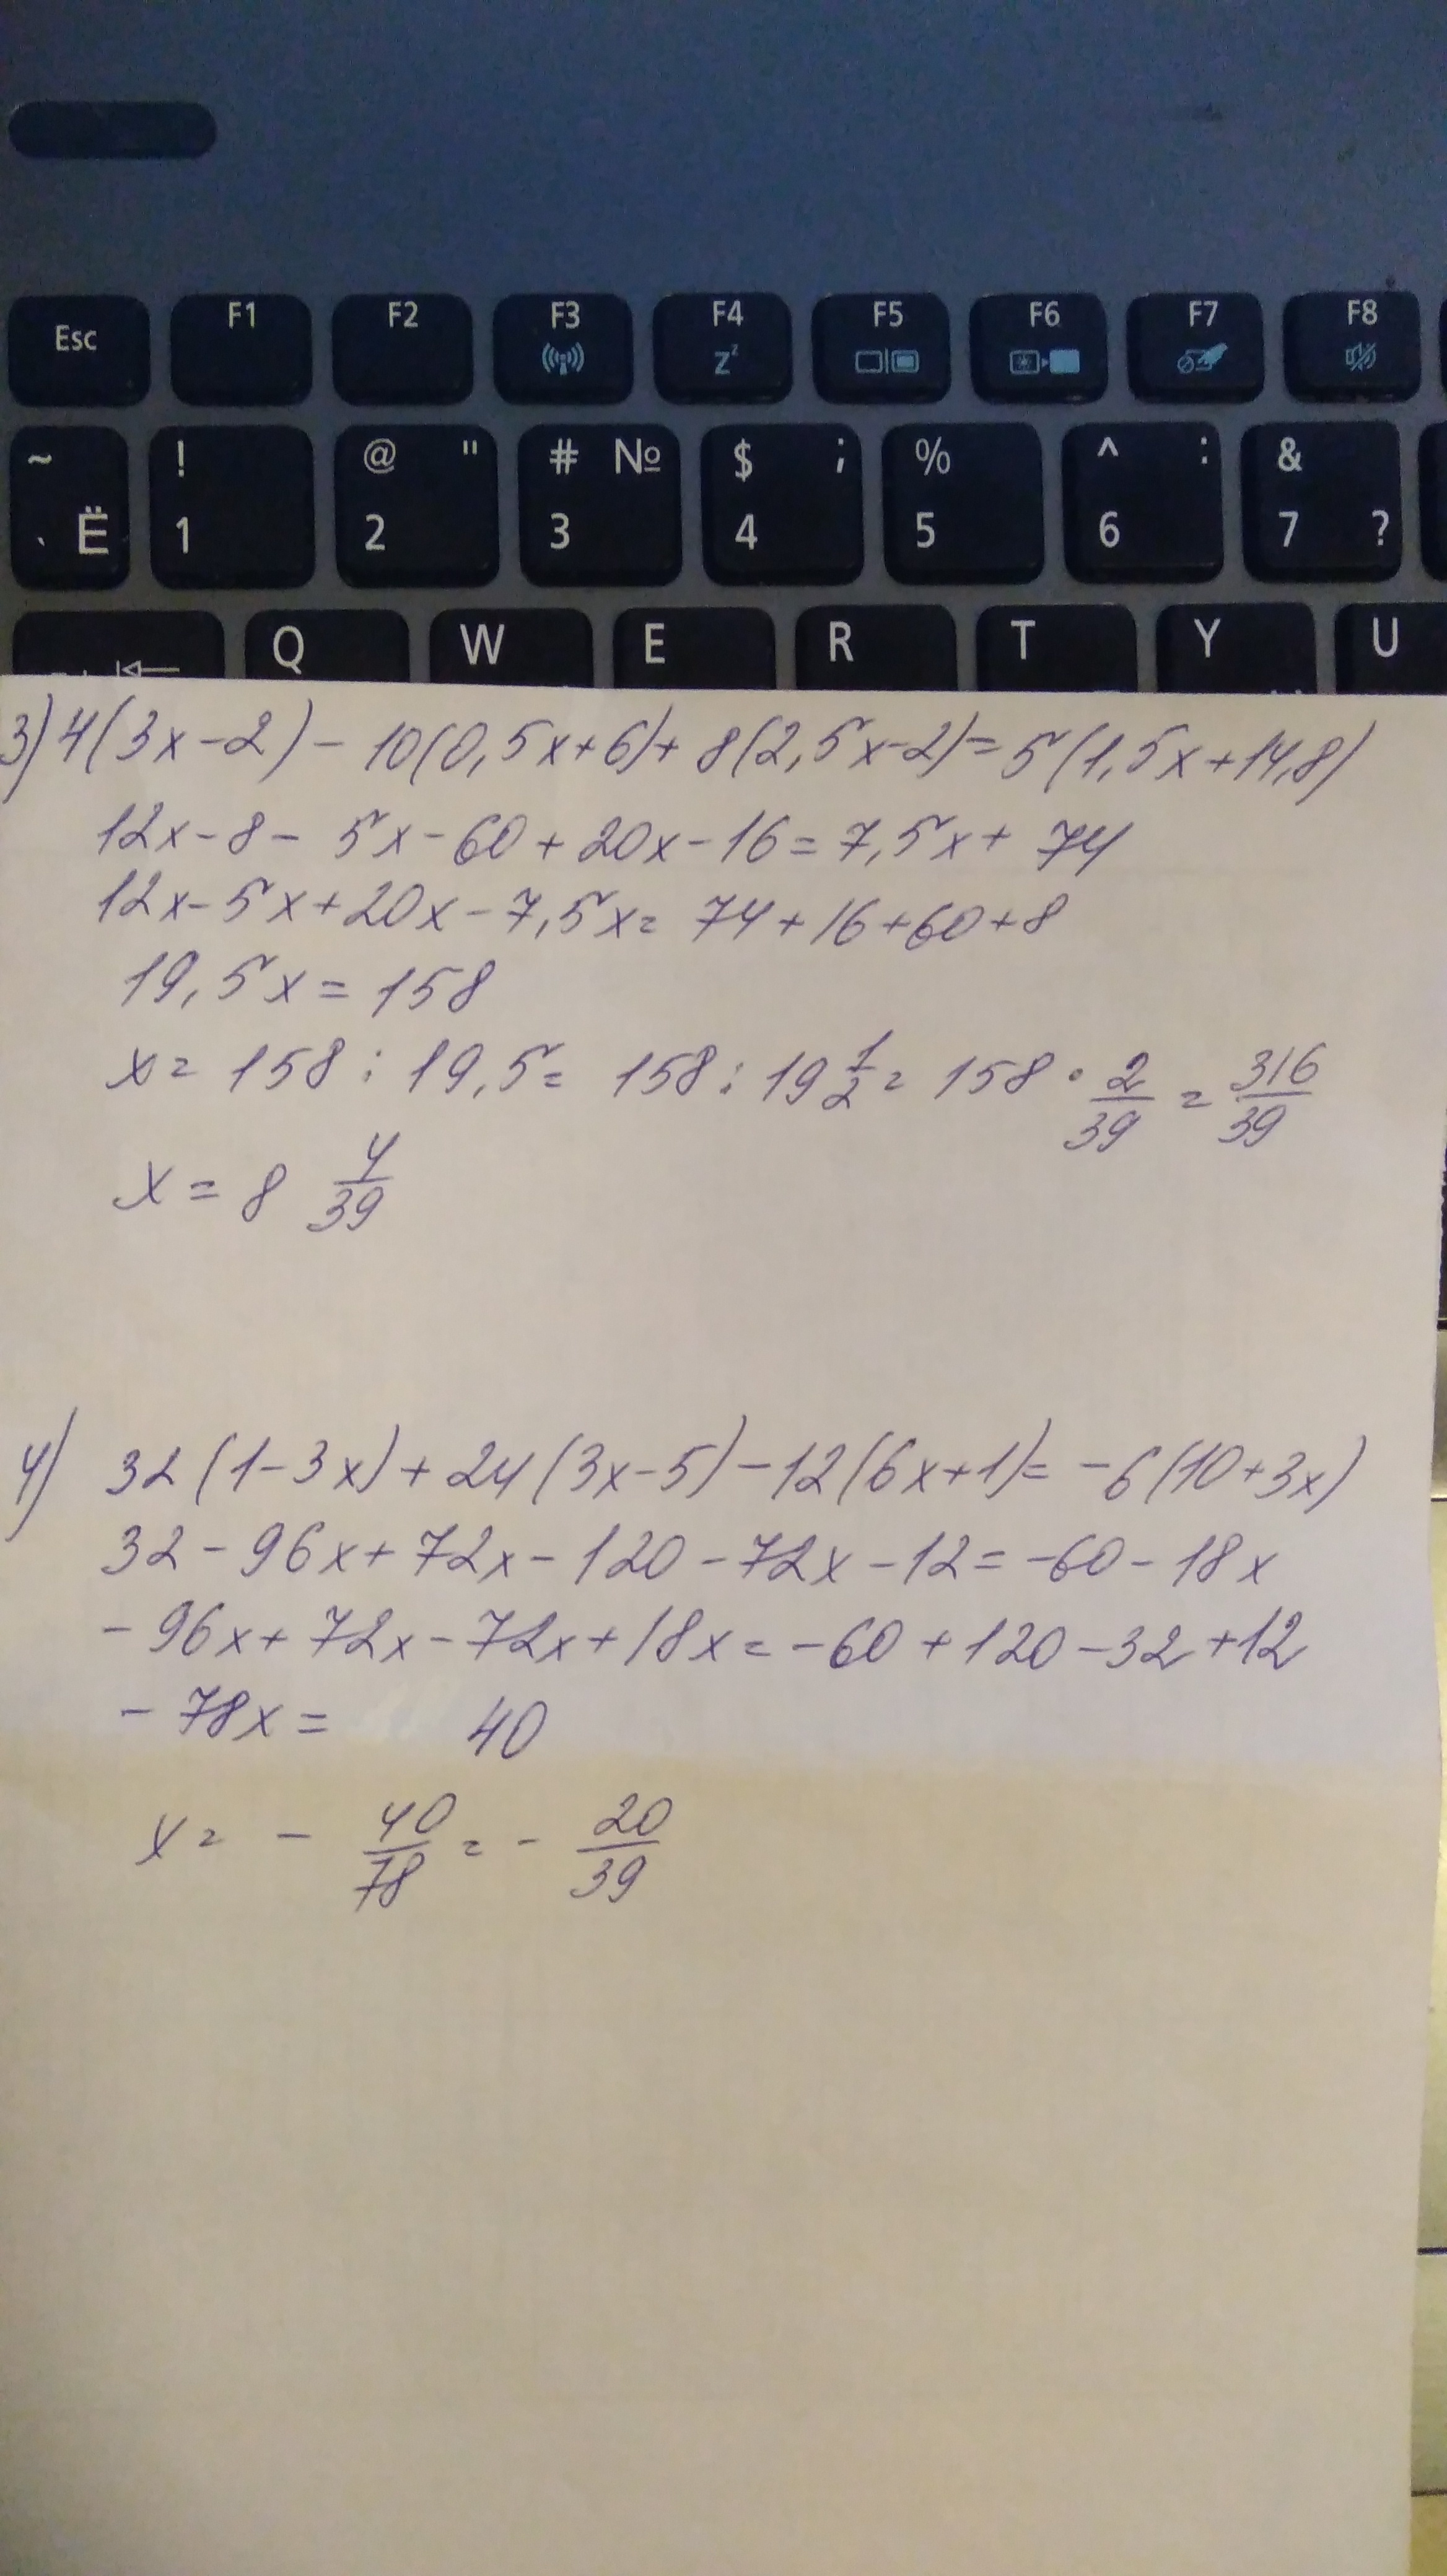 Esc F1 F2 F3 F4 F5 F6 F7 F8
z^z
~ ! @ " # № $ ; % ^ : &
` Ё 1 2 3 4 5 6 7 ?
Q W E R T Y U
3) 4(3x-2) - 10(0,5x+6) + 8(2,5x-2) = 5(1,5x+14,8)
12x - 8 - 5x - 60 + 20x - 16 = 7,5x + 74
12x - 5x + 20x - 7,5x = 74 + 16 + 60 + 8
19,5x = 158
x = 158 : 19,5 = 158 : 19 1/2 = 158 · 2/39 = 316/39
x = 8 4/39
4) 32(1-3x) + 24(3x-5) - 12(6x+1) = -6(10+3x)
32 - 96x + 72x - 120 - 72x - 12 = -60 - 18x
- 96x + 72x - 72x + 18x = -60 + 120 - 32 + 12
- 78x = 40
x = - 40/78 = - 20/39